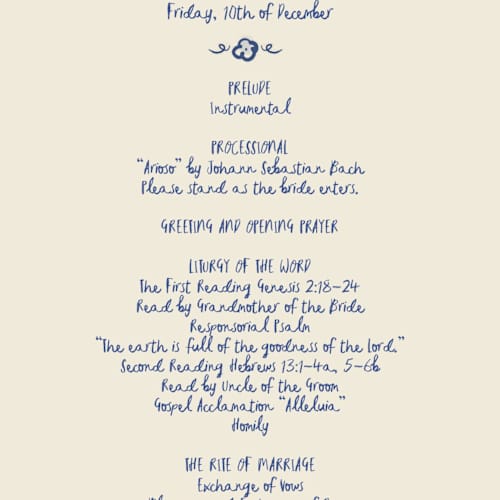 Friday, 10th of December
PRELUDE
Instrumental
PROCESSIONAL
"Arioso" by Johann Sebastian Bach
Please stand as the bride enters.
GREETING AND OPENING PRAYER
LITURGY OF THE WORD
The First Reading Genesis 2:18-24
Read by Grandmother of the Bride
Responsorial Psalm
"The earth is full of the goodness of the lord."
Second Reading Hebrews 13:1-4a, 5-6b
Read by Uncle of the Groom
Gospel Acclamation "Alleluia"
Homily
THE RITE OF MARRIAGE
Exchange of Vows